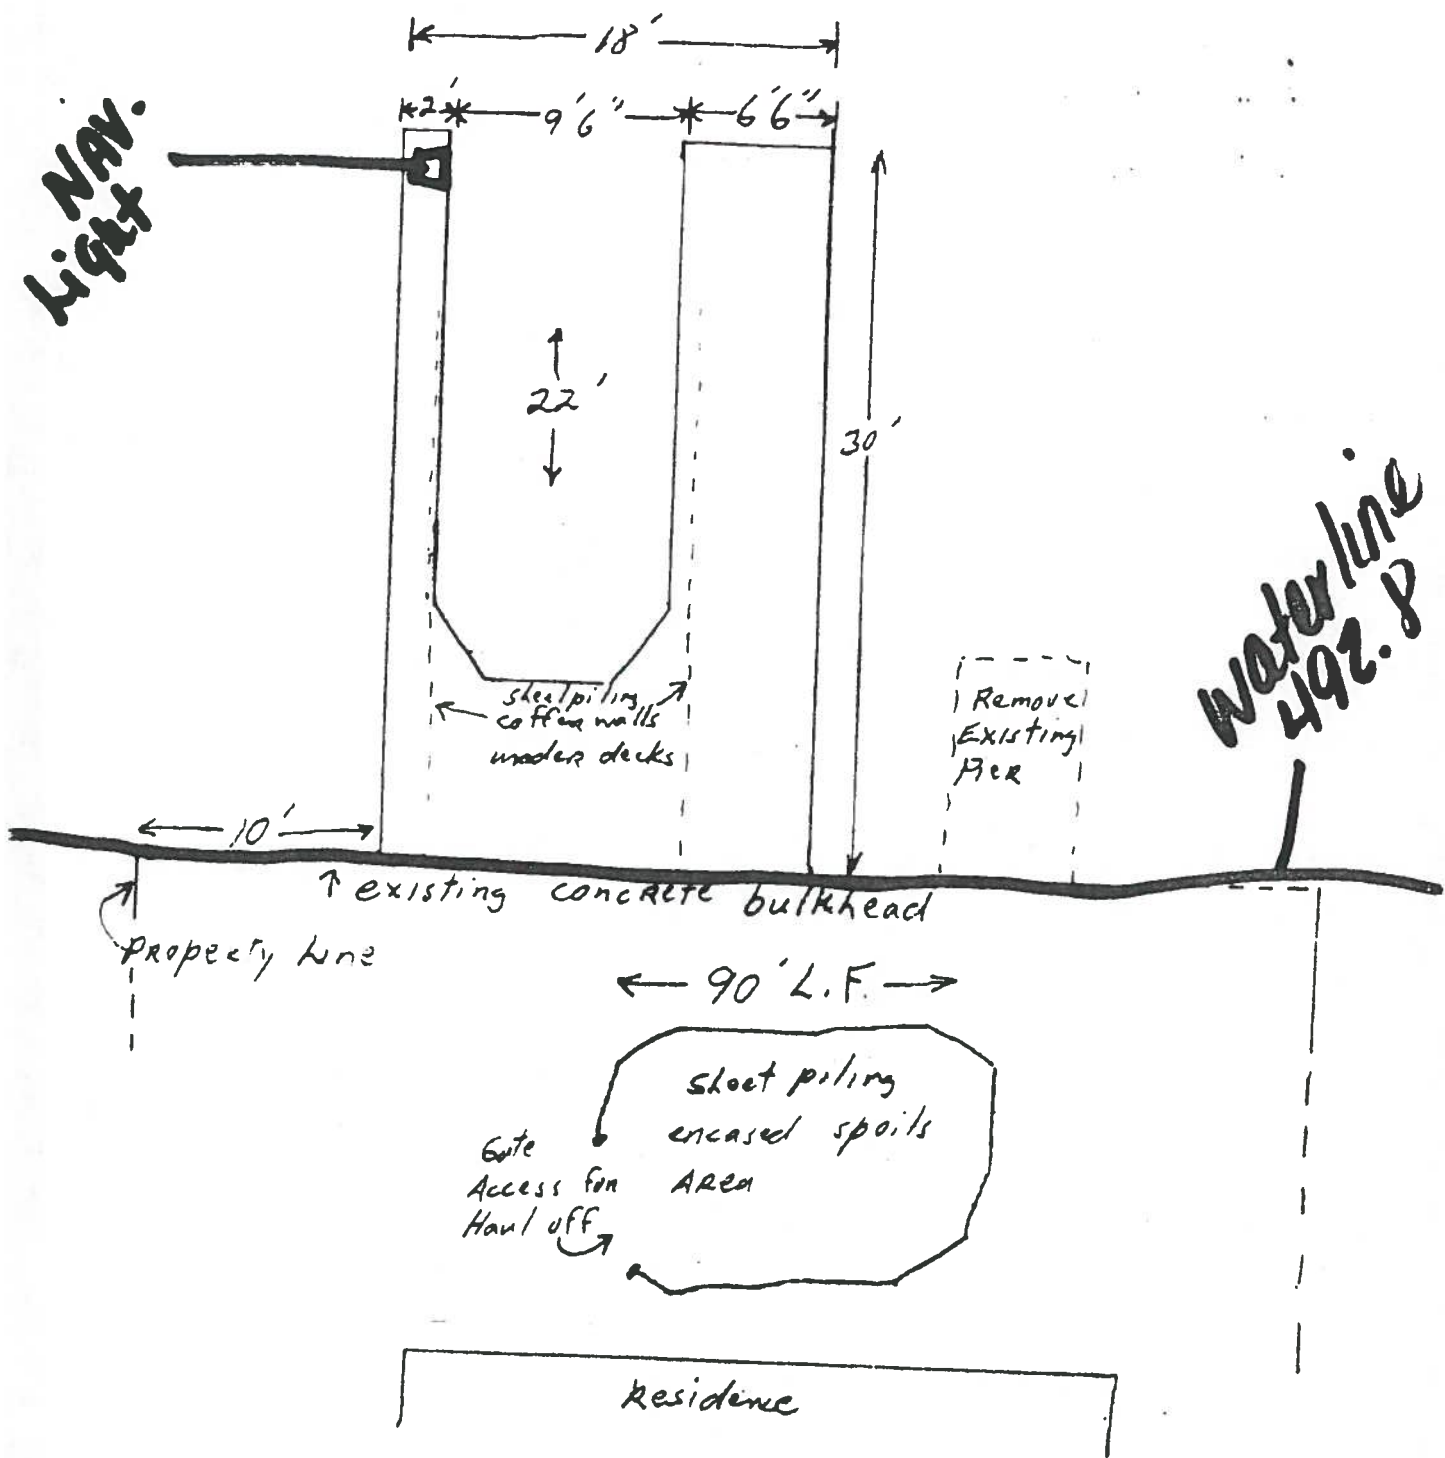 18'
2'
9'6"
6'6"
NAV.
Light
22'
30'
Waterline
492.8
sheetpiling
coffer walls
under decks
Remove
Existing
Pier
10'
existing concrete bulkhead
Property Line
90' L.F.
sheet piling
encased spoils
Area
Gate
Access for
Haul off
Residence